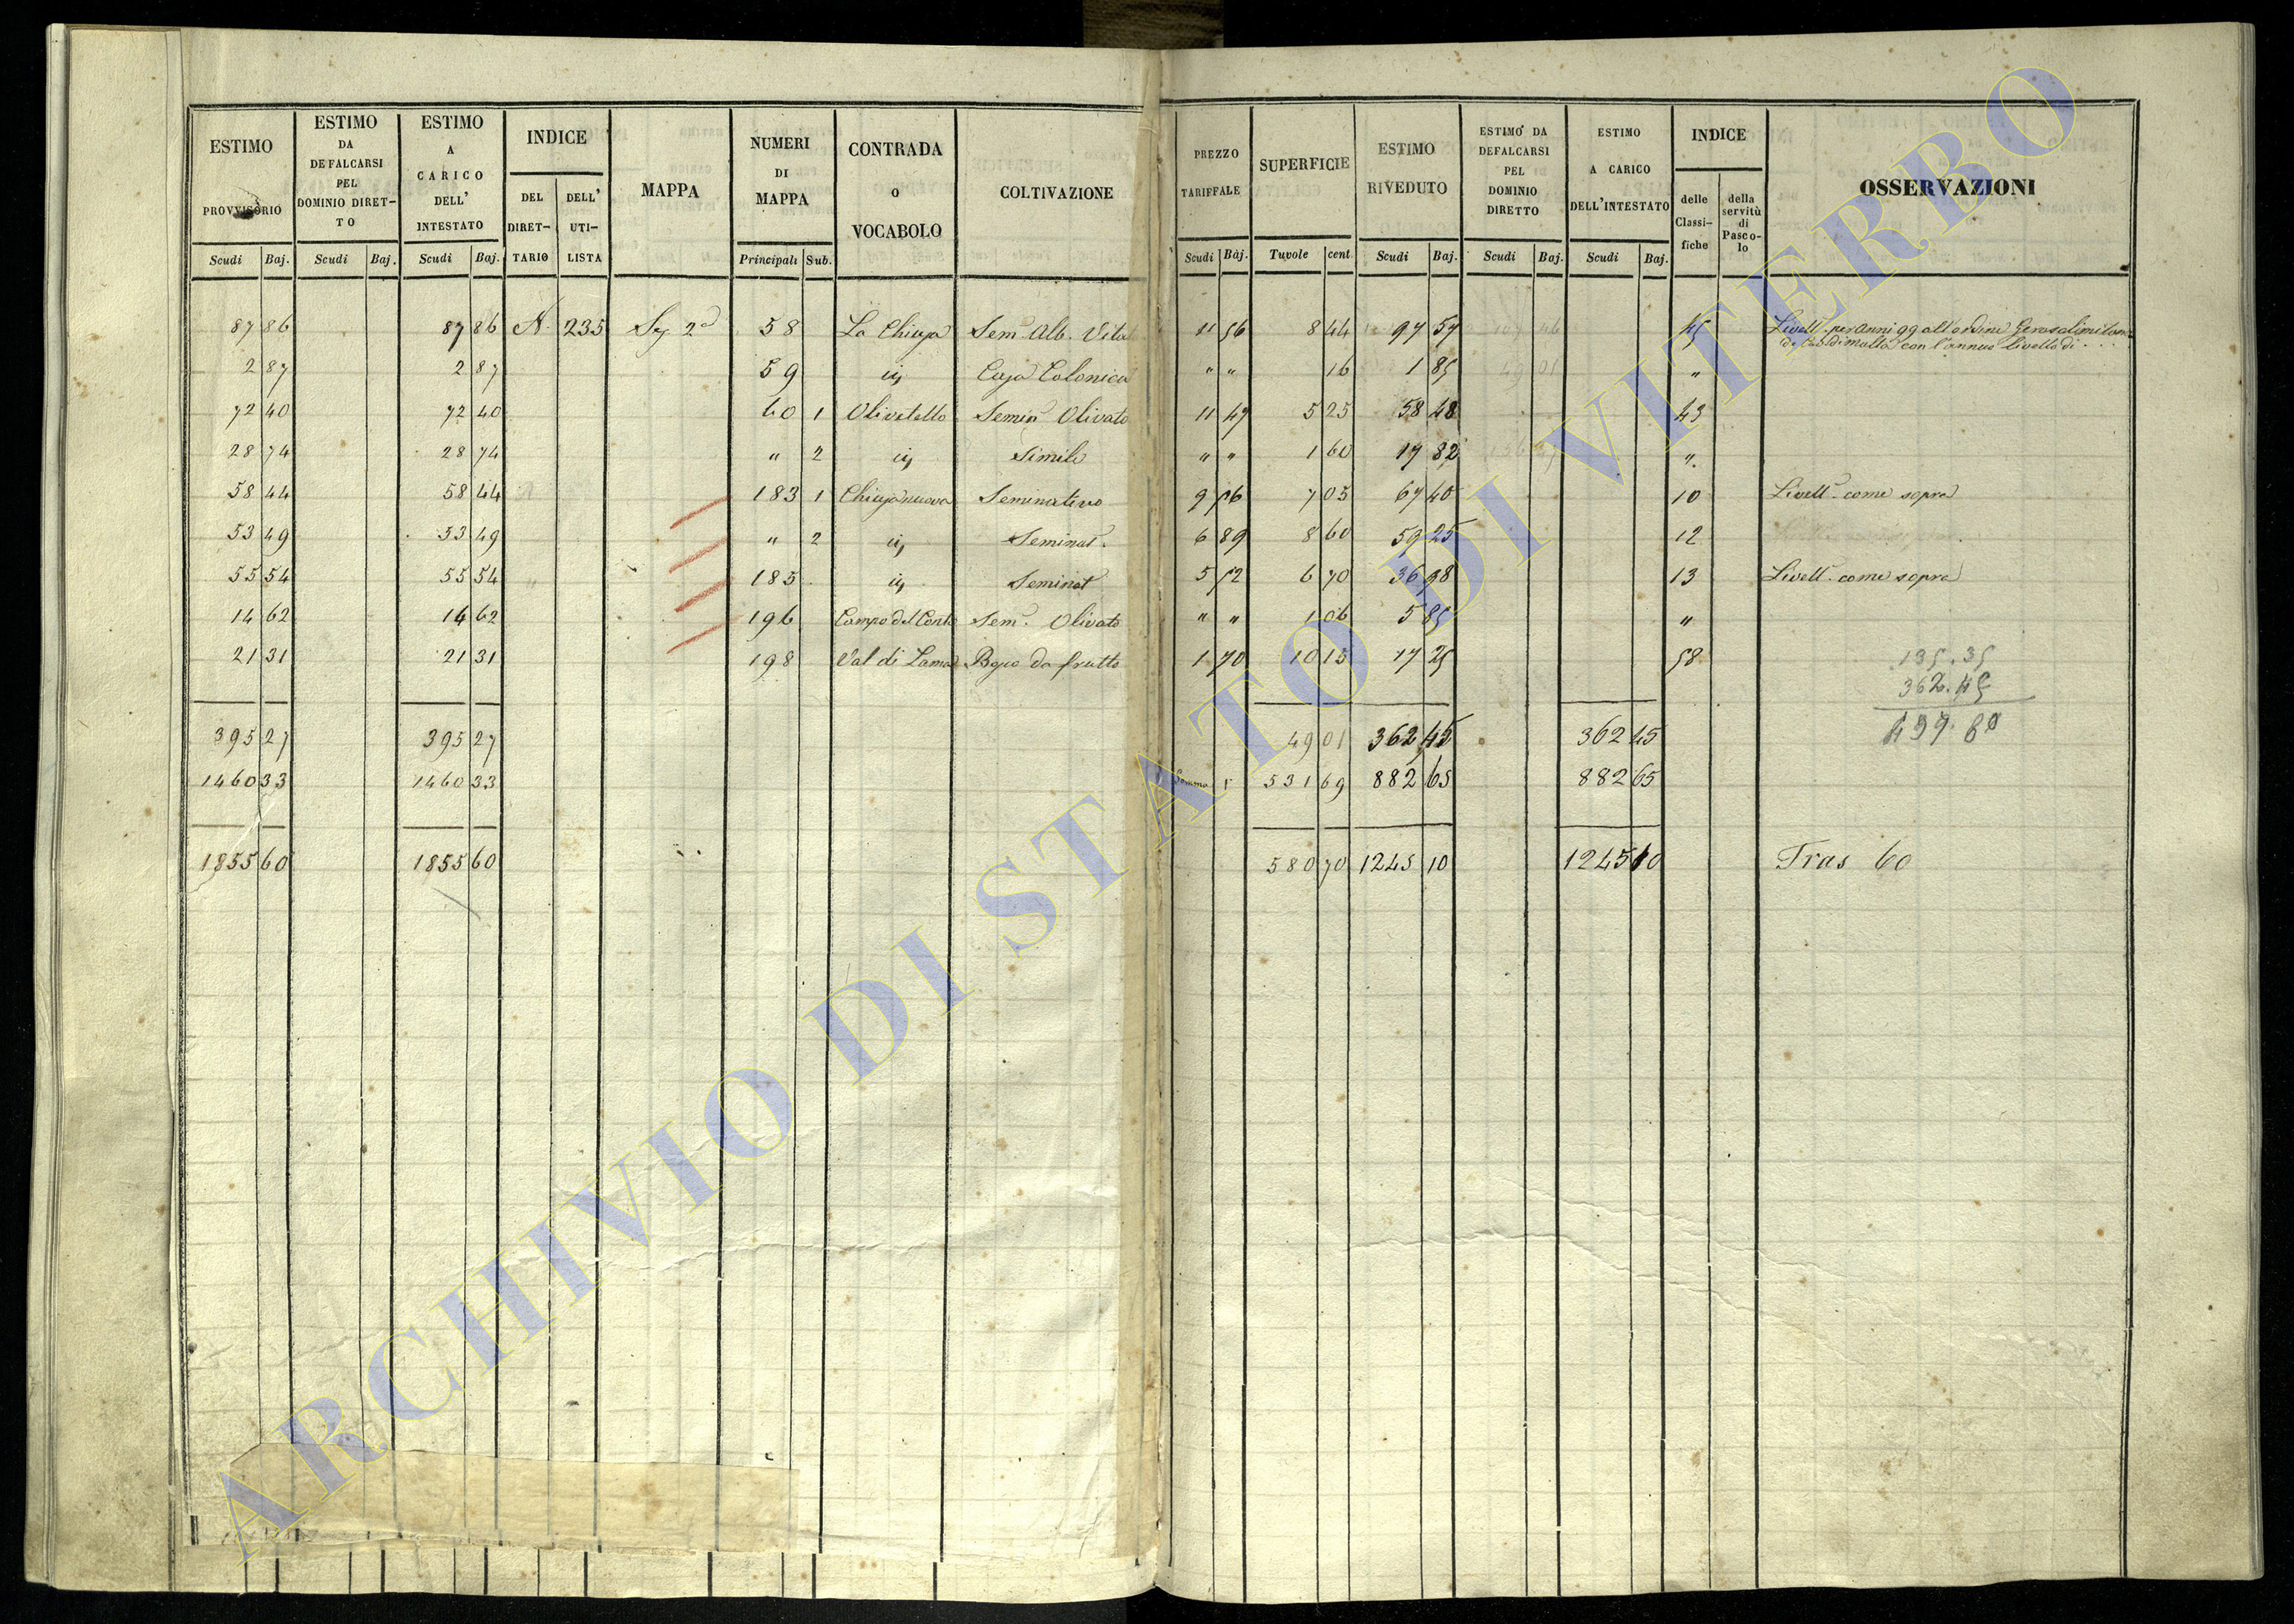 ESTIMO PROVVISORIO Scudi Baj.
ESTIMO DA DEFALCARSI PEL DOMINIO DIRETTO Scudi Baj.
ESTIMO A CARICO DELL' INTESTATO Scudi Baj.
INDICE DEL DIRETTARIO DELL' UTILISTA
MAPPA
NUMERI DI MAPPA Principali Sub.
CONTRADA O VOCABOLO
COLTIVAZIONE
PREZZO TARIFFALE Scudi Baj.
SUPERFICIE Tavole cent.
ESTIMO RIVEDUTO Scudi Baj.
ESTIMO DA DEFALCARSI PEL DOMINIO DIRETTO Scudi Baj.
ESTIMO A CARICO DELL'INTESTATO Scudi Baj.
INDICE delle Classifiche della servitù di Pascolo
OSSERVAZIONI
87 86 87 86 A. 235 Sez. 2ª 58 La Chiusa Sem. Alb. Vitat 11 56 8 44 97 57 45 Livell. per anni 99 all'ordine Gerosolimitano
di Malta con l'annuo livello di . . .
2 87 2 87 59 id Casa Colonica " " 16 1 85 "
72 40 72 40 60 1 Olivetello Semin Olivato 11 47 5 25 58 48 43
28 74 28 74 " 2 id Simile " " 1 60 17 82 "
58 44 58 44 183 1 Chiusa nuova Seminativo 9 56 7 05 67 40 10 Livell. come sopra
53 49 53 49 " 2 id Seminat. 6 89 8 60 59 25 12
55 54 55 54 185 id Seminat 5 52 6 70 36 98 13 Livell. come sopra
14 62 14 62 196 Campo del Conte Sem. Olivato " " 1 06 5 85 "
21 31 21 31 198 Val di Lama Bosco da frutto 1 70 10 15 17 25 58
135.35
362.45
395 27 395 27 49 01 362 45 362 45 497.80
1460 33 1460 33 Somma 531 69 882 65 882 65
1855 60 1855 60 580 70 1245 10 1245 10 Tras 60
ARCHIVIO DI STATO DI VITERBO